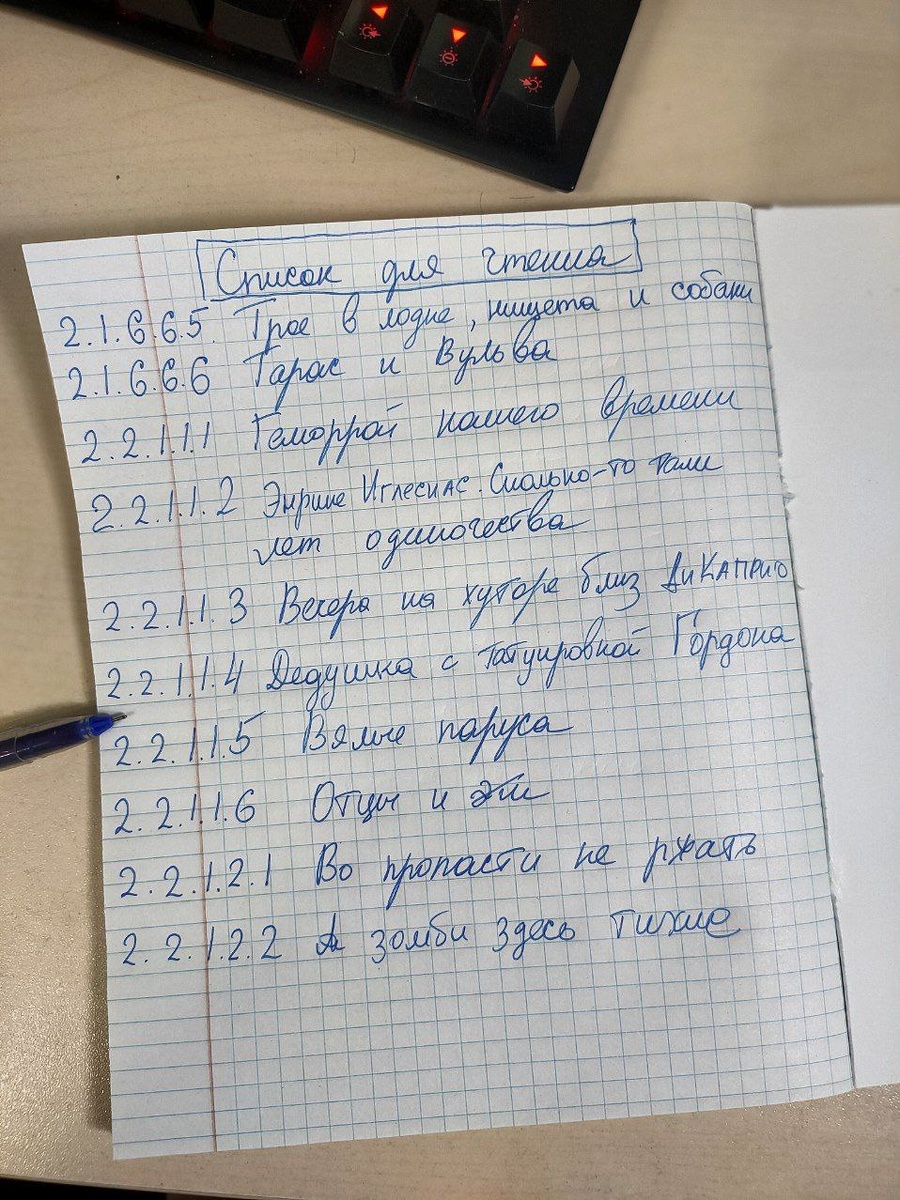 Список для чтения
2.1.6.6.5. Трое в лодке, нищета и собаки
2.1.6.6.6 Тарас и Вульва
2.2.1.1.1 Геморрой нашего времени
2.2.1.1.2 Энрике Иглесиас. Сколько-то там
лет одиночества
2.2.1.1.3 Вечера на хуторе близ ДиКАПРИО
2.2.1.1.4 Дедушка с татуировкой Гордона
2.2.1.1.5 Вялые паруса
2.2.1.1.6 Отцы и эти
2.2.1.2.1 Во пропасти не ржать
2.2.1.2.2 А зомби здесь тихие